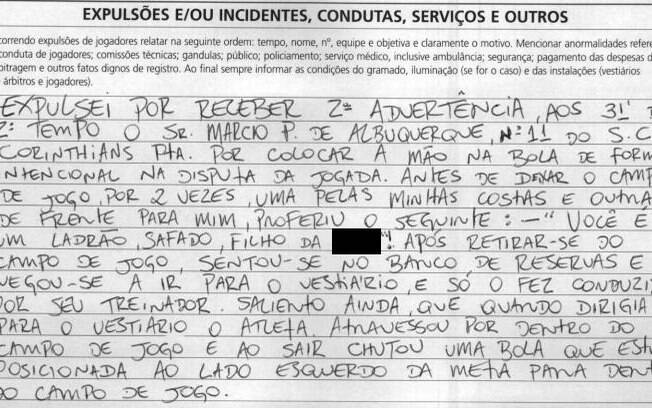 EXPULSÕES E/OU INCIDENTES, CONDUTAS, SERVIÇOS E OUTROS
correndo expulsões de jogadores relatar na seguinte ordem: tempo, nome, nº, equipe e objetiva e claramente o motivo. Mencionar anormalidades refere
conduta de jogadores; comissões técnicas; gandulas; público; policiamento; serviço médico, inclusive ambulância; segurança; pagamento das despesas d
bitragem e outros fatos dignos de registro. Ao final sempre informar as condições do gramado, iluminação (se for o caso) e das instalações (vestiários
e árbitros e jogadores).
EXPULSEI POR RECEBER 2ª ADVERTÊNCIA, AOS 31' D
2º TEMPO O SR. MARCIO P. DE ALBUQUERQUE, Nº 11 DO S.C.
CORINTHIANS PTA. POR COLOCAR A MÃO NA BOLA DE FORM
INTENCIONAL NA DISPUTA DA JOGADA. ANTES DE DEIXAR O CAMP
DE JOGO, POR 2 VEZES, UMA PELAS MINHAS COSTAS E OUTRA
DE FRENTE PARA MIM, PROFERIU O SEGUINTE: -"VOCÊ É
UM LADRÃO, SAFADO, FILHO DA "! APÓS RETIRAR-SE DO
CAMPO DE JOGO, SENTOU-SE NO BANCO DE RESERVAS E
NEGOU-SE A IR PARA O VESTIÁRIO, E SÓ O FEZ CONDUZI
POR SEU TREINADOR. SALIENTO AINDA, QUE QUANDO DIRIGIA
PARA O VESTIÁRIO O ATLETA ATRAVESSOU POR DENTRO DO
CAMPO DE JOGO E AO SAIR CHUTOU UMA BOLA QUE EST
POSICIONADA AO LADO ESQUERDO DA META PARA DENT
DO CAMPO DE JOGO.